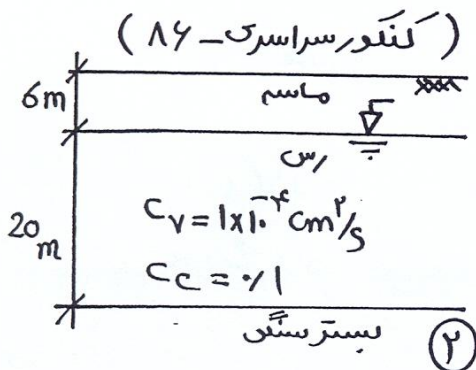 (کنکور سراسری - ۸۶)
6m
ماسه
رس
20m
Cv = 1x10^-۴ cm^۲/s
Cc = ۰/۱
بستر سنگی
۲